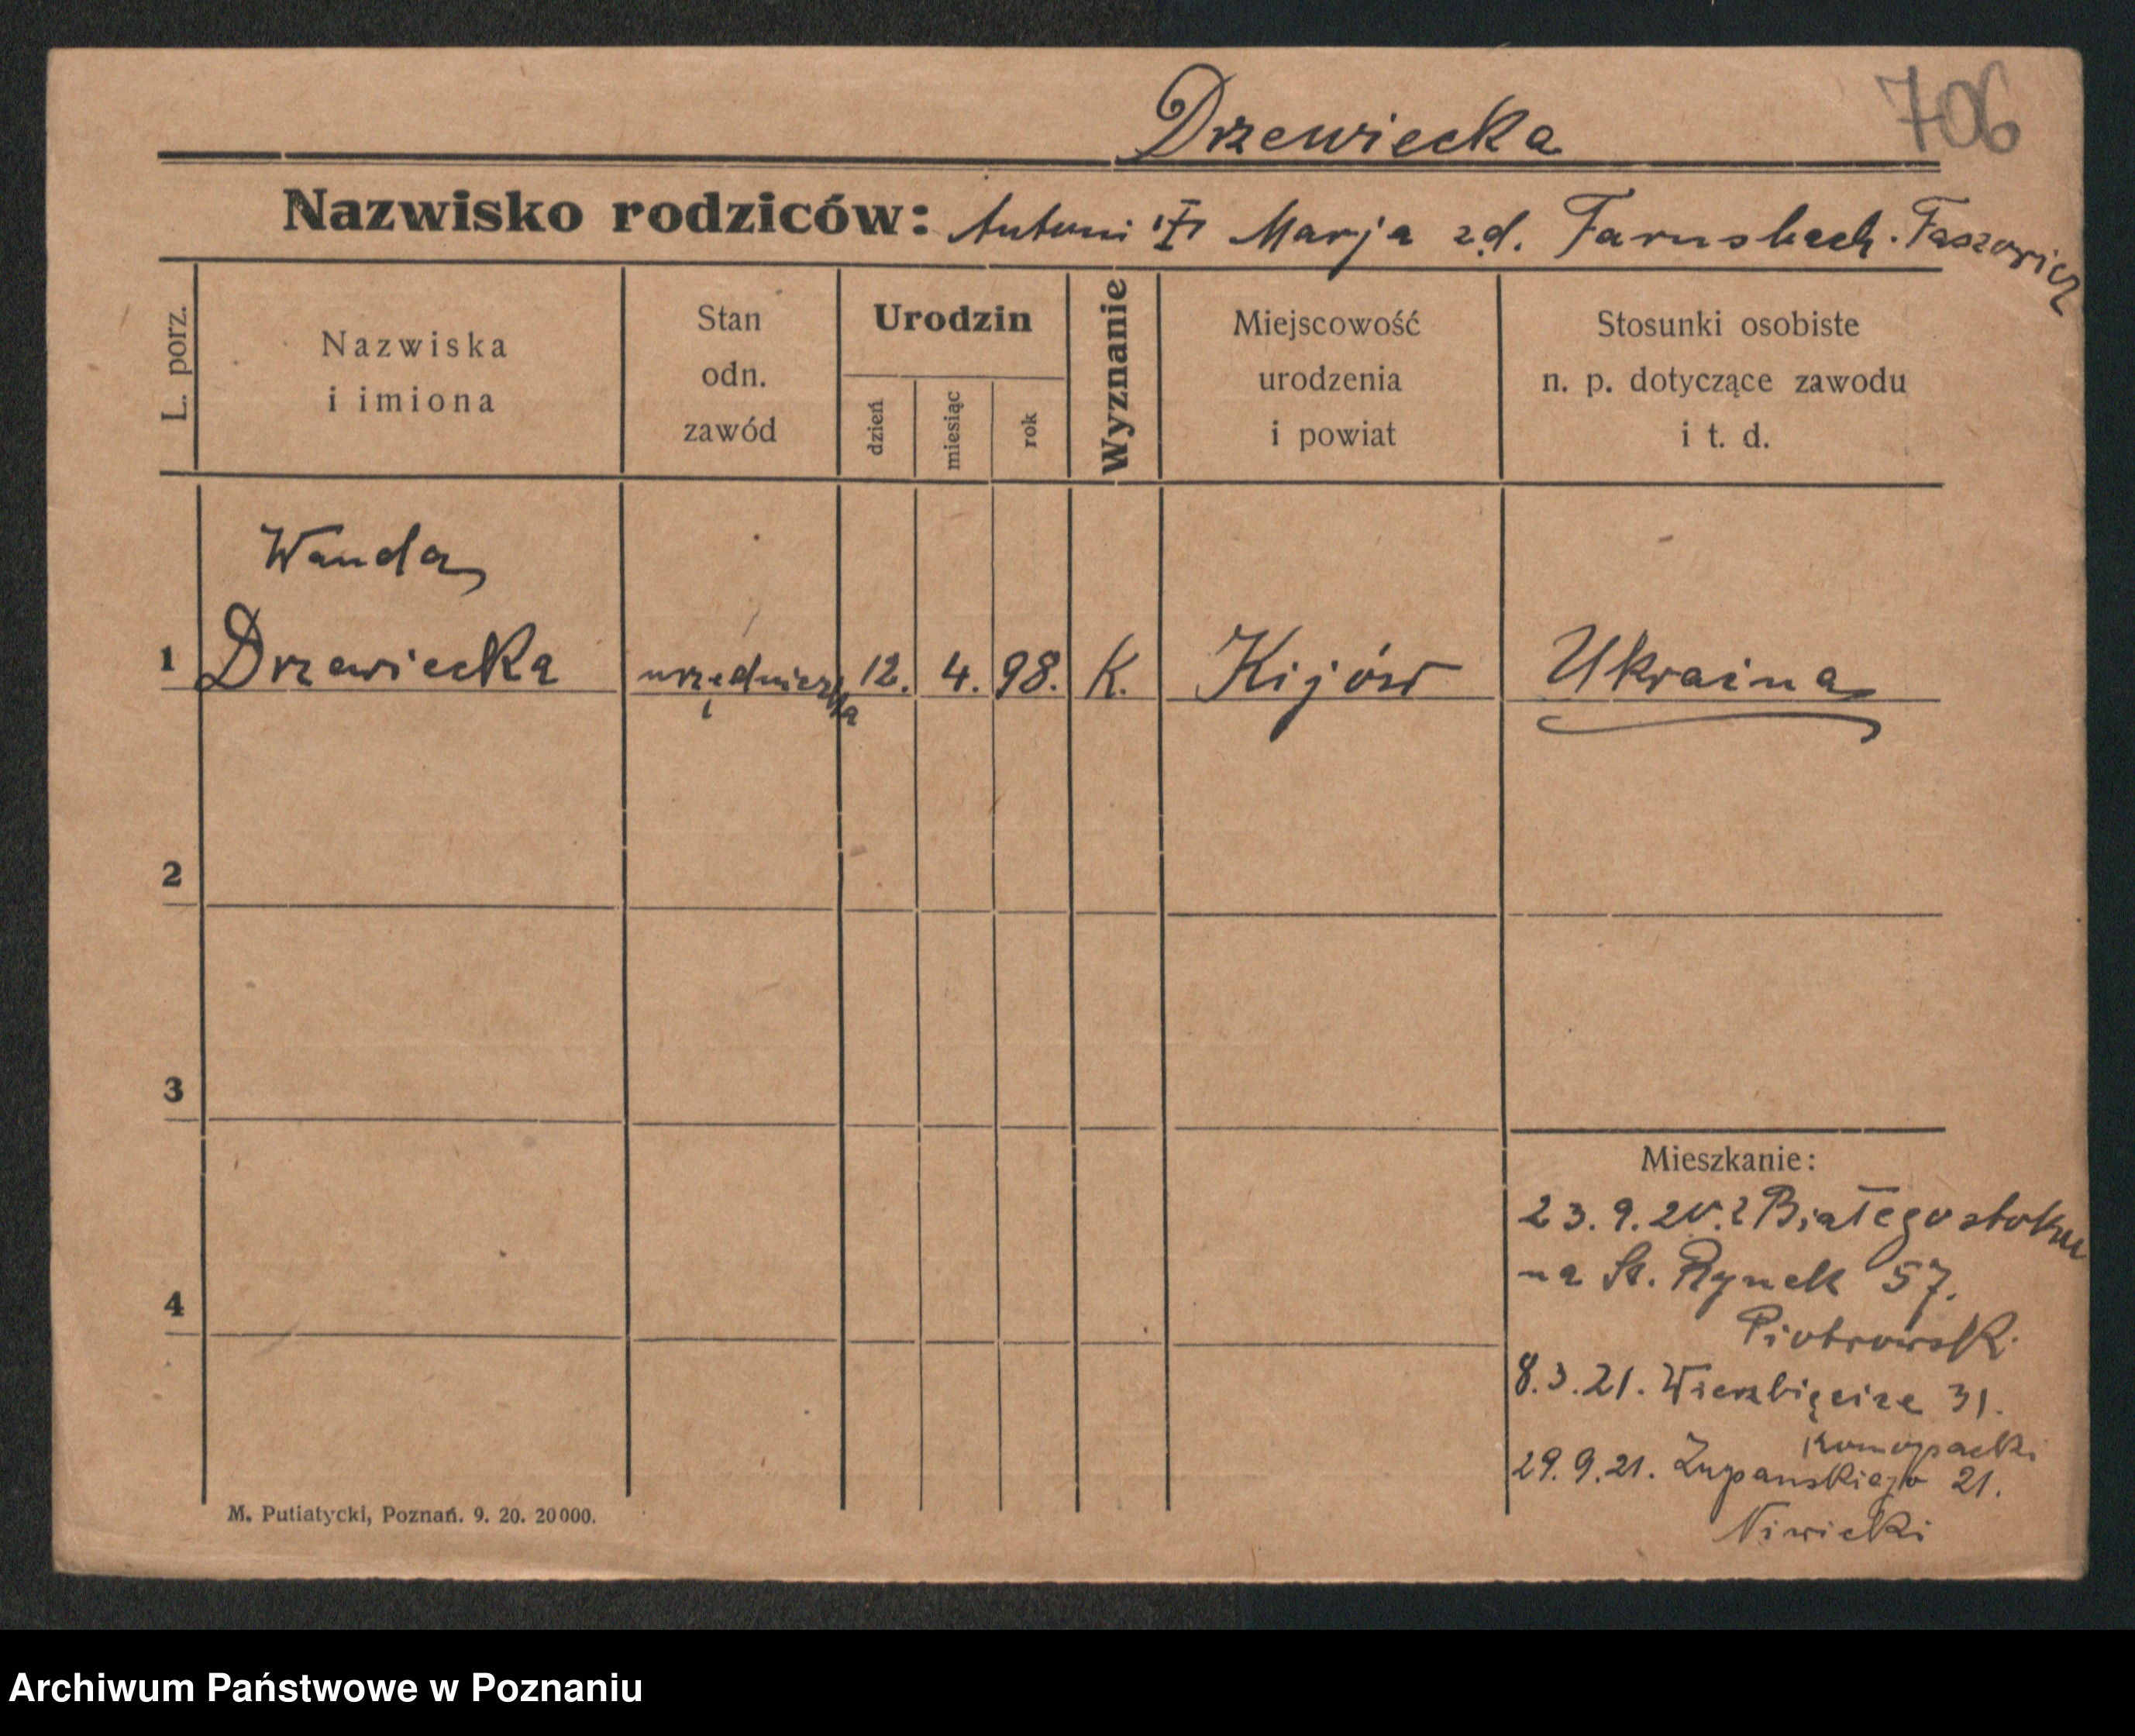 Drzewiecka
706
Nazwisko rodziców: Antoni Marja zd. Farusbach. Faszowicz
L. porz.
Nazwiska
i imiona
Stan
odn.
zawód
Urodzin
dzień
miesiąc
rok
Wyznanie
Miejscowość
urodzenia
i powiat
Stosunki osobiste
n. p. dotyczące zawodu
i t. d.
Wanda
1 Drzewiecka urzędniczka 12. 4. 98. K. Kijów Ukraina
2
3
4
Mieszkanie:
23.9.20. z Białegostoku
na St. Rynek 57.
Piotrowsk.
8.3.21. Wierzbięcice 31.
Konopacki
29.9.21. Żupańskiego 21.
Niwicki
M. Putiatycki, Poznań. 9. 20. 20000.
Archiwum Państwowe w Poznaniu